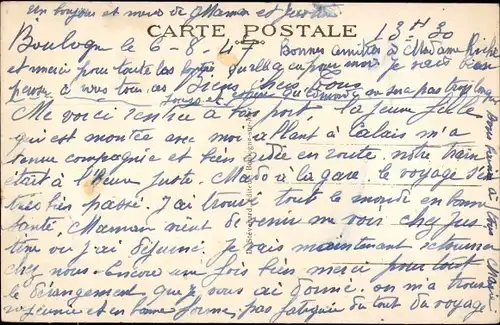 Un bonjour et merci de Maman et Justine
CARTE POSTALE
13 H 30
Boulogne le 6-8-47 Bonnes amitiés à Madame
et merci pour toute les bontés qu'elle a eu pour moi je vais bien
penser à vous tous Biens Chers Tous
Me voici rentrée à bon port, la jeune fille
qui est montée avec moi a Calais m'a
tenue compagnie et bien aidée en route, notre train
était à l'heure juste. Mado à la gare. le voyage s'est
très bien passé. J'ai trouvé tout le monde en bonne
santé, Maman vient de venir me voir chez Jus
tine ou j'ai déjeuné. Je vais maintenant retourner
chez nous. Encore une fois bien merci pour tout
le dérangement que je vous ai donné. on m'a trouvé
rajeunie et en bonne forme, pas fatiguée du tout du voyage